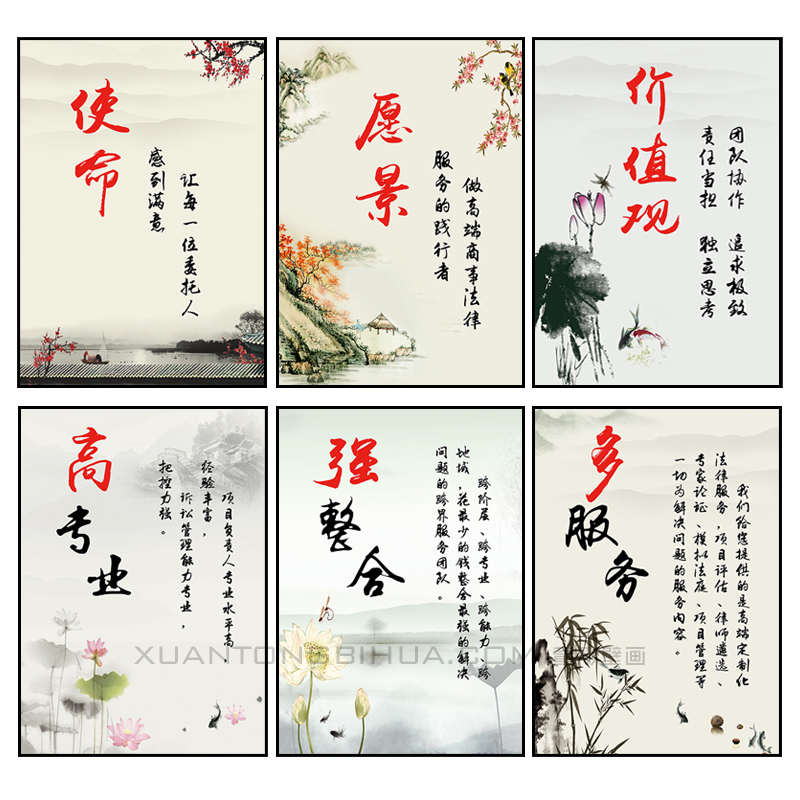 使命
让每一位委托人
感到满意
愿景
做高端商事法律
服务的践行者
价值观
团队协作 追求极致
责任当担 独立思考
高专业
项目负责人专业水平高
经验丰富，
诉讼管理能力专业，
把控力强。
强整合
跨阶层、跨专业、跨能力、跨
地域，花最少的钱整合最强的解决
问题的跨界服务团队。
多服务
我们给您提供的是高端定制化
法律服务，项目评估、律师遴选、
专家论证、模拟法庭、项目管理等
一切为解决问题的服务内容。
XUANTONGBIHUA.COM
壁画